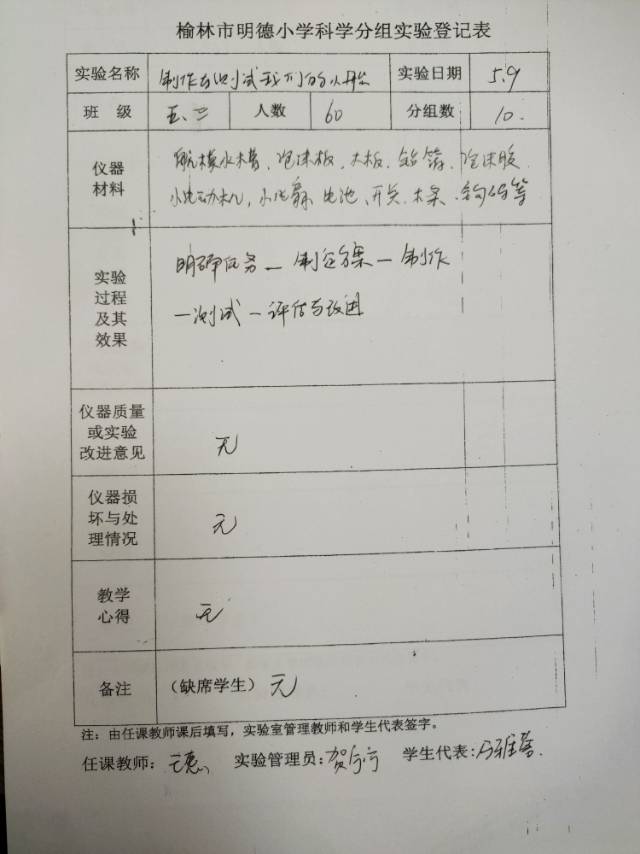 榆林市明德小学科学分组实验登记表
实验名称 制作与测试我们的小船 实验日期 5.9
班 级 五.三 人数 60 分组数 10.
仪器材料 航模水槽、泡沫板、木板、铝箔、泡沫胶、
小电动机,小风扇、电池、开关、木条、钩码等
实验过程及其效果 明确任务—制定方案—制作
—测试—评估与改进
仪器质量或实验改进意见 无
仪器损坏与处理情况 无
教学心得 无
备注 (缺席学生) 无
注:由任课教师课后填写,实验室管理教师和学生代表签字。
任课教师: 实验管理员:贺 学生代表: